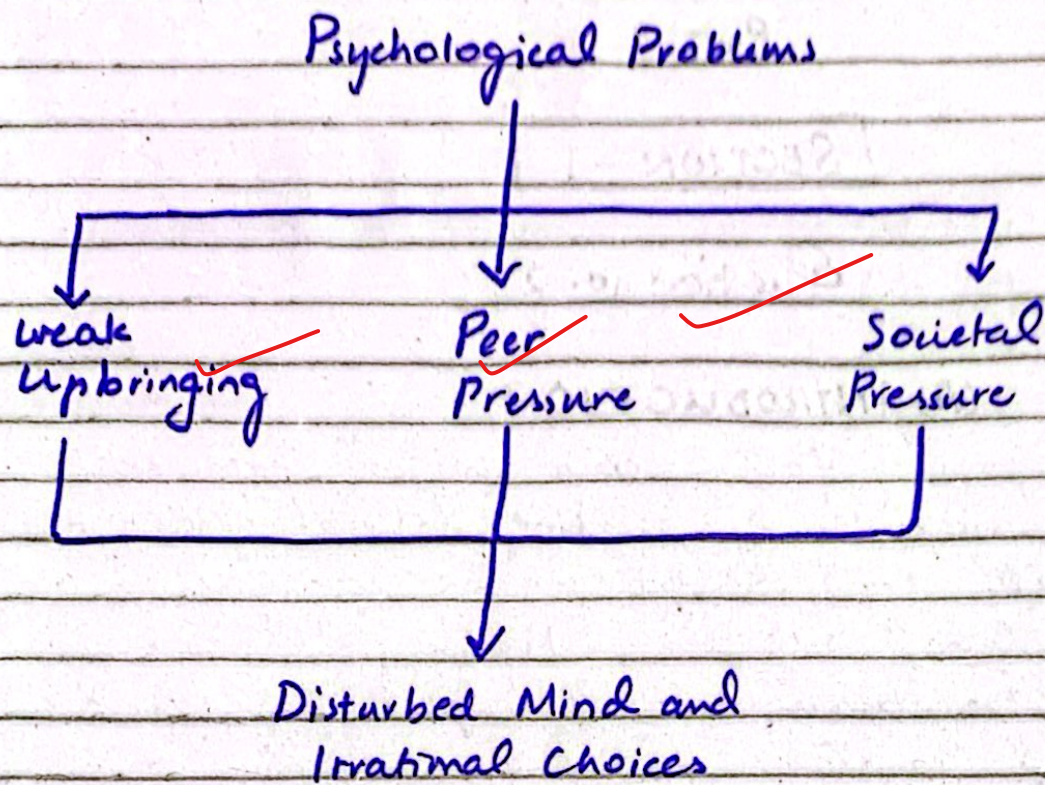 Psychological Problems
weak
Upbringing
Peer
Pressure
Societal
Pressure
Disturbed Mind and
Irrational Choices